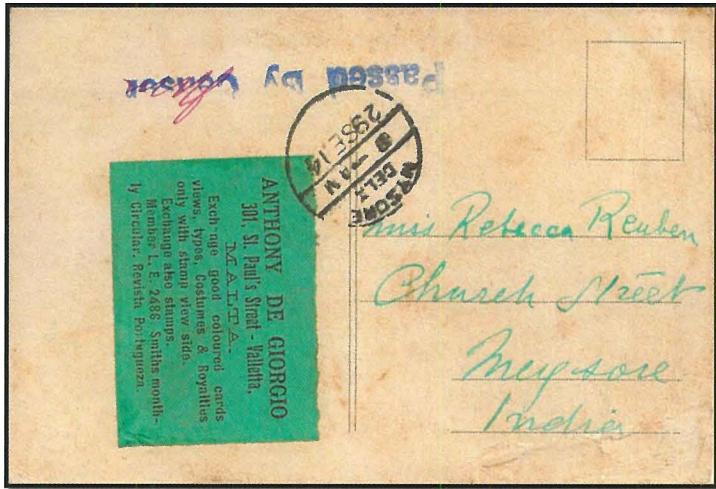 Passed By Censor
MYSORE
DEL.
29 SE 14
ANTHONY DE GIORGIO
301. St. Paul's Street - Valletta.
MALTA.
Exch nge good coloured cards
views, types, Costumes & Royalties
only with stamp view side.
Exchange also stamps.
Member L. E. 2486 Smiths month-
ly Circular. Revista Portugueza.
Miss Rebecca Reuben
Church Street
Meysore
India